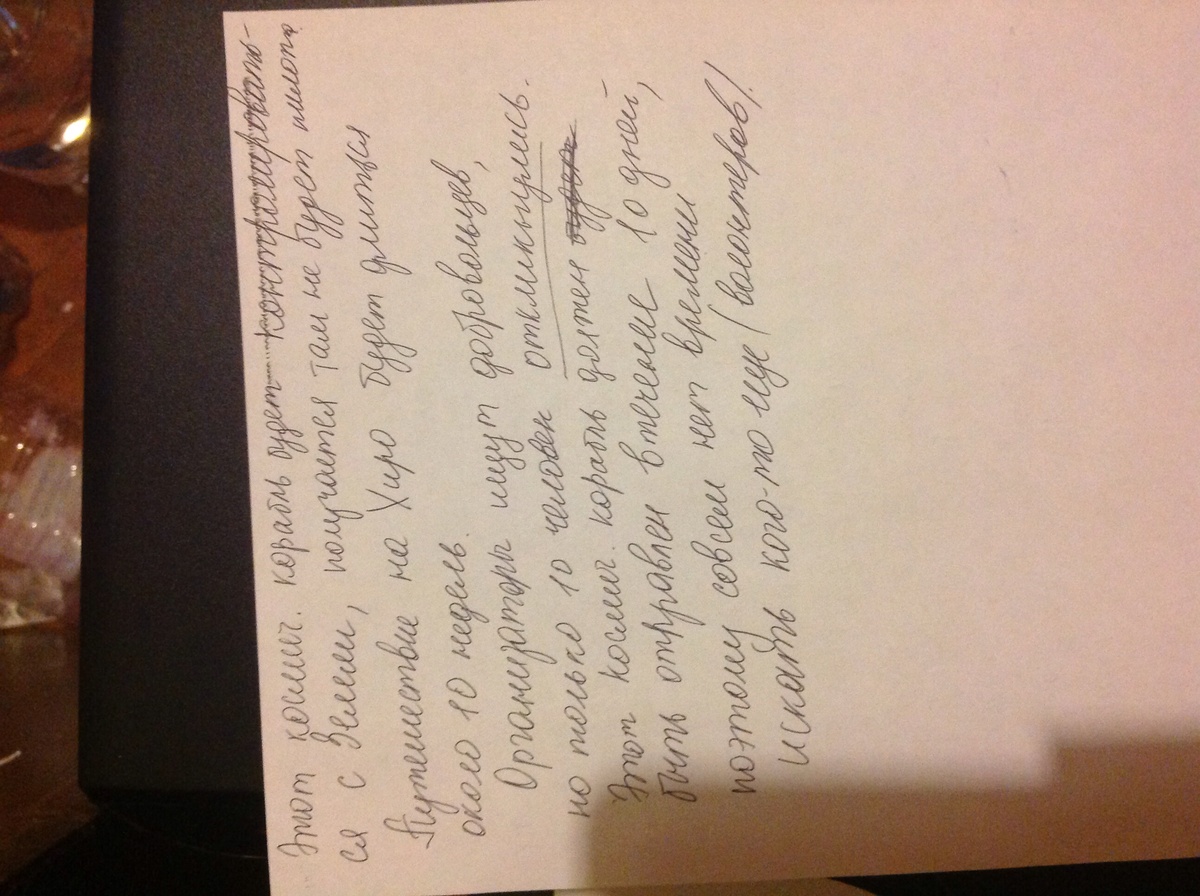 Этот космич. корабль будет контрлировать-
ся с Земли, получается там не будет пилота.
Путешествие на Хиро будет длиться
около 10 недель.
Организаторы ищут добровольцев,
но только 10 человек откликнулись.
Этот космич. корабль должен
быть отправлен в течение 10 дней,
поэтому совсем нет времени
искать кого-то еще (волонтеров).